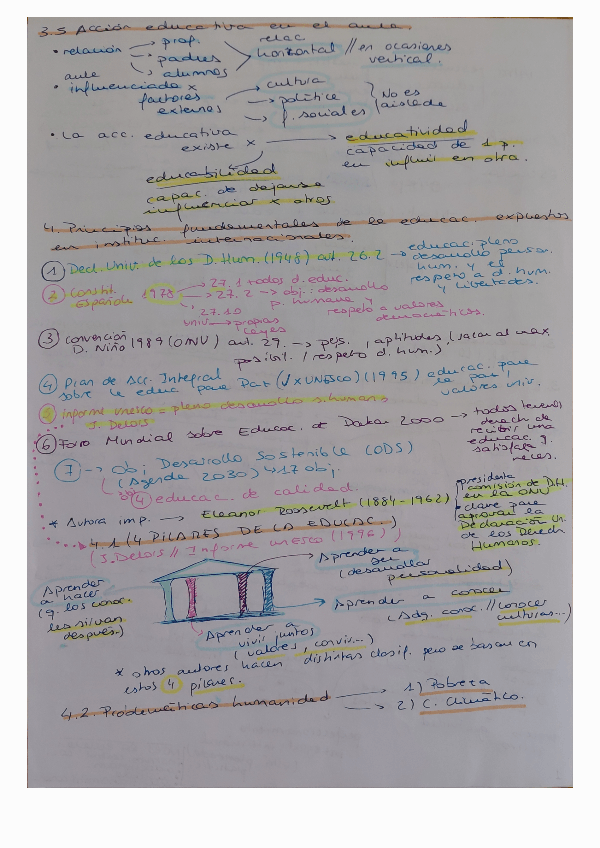 3.5 Acción educativa en el aula.
• relación → prof. relac
→ padres horizontal // en ocasiones
aula → alumnos vertical.
• influenciada x → cultura
factores → política No es
externos → f. sociales aislada
• La acc. educativa → educatividad
existe x capacidad de 1 p.
en influir en otra.
educabilidad
capac. de dejarse
influenciar x otros
4. Principios fundamentales de la educac. expuestos
en instituc. internacionales.
① Decl. Univ. de los D. Hum. (1948) art. 26.2 → educac. pleno
desarrollo person.
hum. y el
respeto a d. hum.
y libertades.
② Constit. → 27.1 todos d. educ.
Española 1978 → 27.2 → obj.: desarrollo
p. humana y
respeto a valores
democráticos.
27.10
univ → propias
leyes
③ Convención 1989 (ONU) art. 29. → pers., aptitudes (sacar al max.
D. Niño posibil. / respeto d. hum.)
④ Plan de Acc. Integral
sobre la educ para Paz (√ x UNESCO) (1995) educac. para
la paz,
valores univ.
⑤ informe unesco = pleno desarrollo s. humano
J. Delors
⑥ Foro Mundial sobre Educac. de Dakar 2000 → todos tenemos
derech. de
recibir una
educac. q.
satisfaga
neces.
⑦ → Obj Desarrollo Sostenible (ODS)
(Agenda 2030) 17 obj.
④ educac. de calidad.
* Autora imp. → Eleanor Roosevelt (1884-1962)
• presidenta
comisión de D.H.
en la ONU
• clave para
aprobar la
Declaración Un.
de los Derech
Humanos.
4.1 (4 PILARES DE LA EDUCAC.)
(J. Delors // Informe unesco (1996))
Aprender a
ser
(desarrollar
personalidad)
Aprender
a hacer
(q. los conoc.
les sirvan
después.)
Aprender a conocer
(Adq. conoc. // conocer
culturas...)
Aprender a
vivir juntos
(valores, convivir...)
* otros autores hacen distintas clasif. pero se basan en
estos 4 pilares.
4.2. Problemáticas humanidad → 1) Pobreza
→ 2) C. Climático.